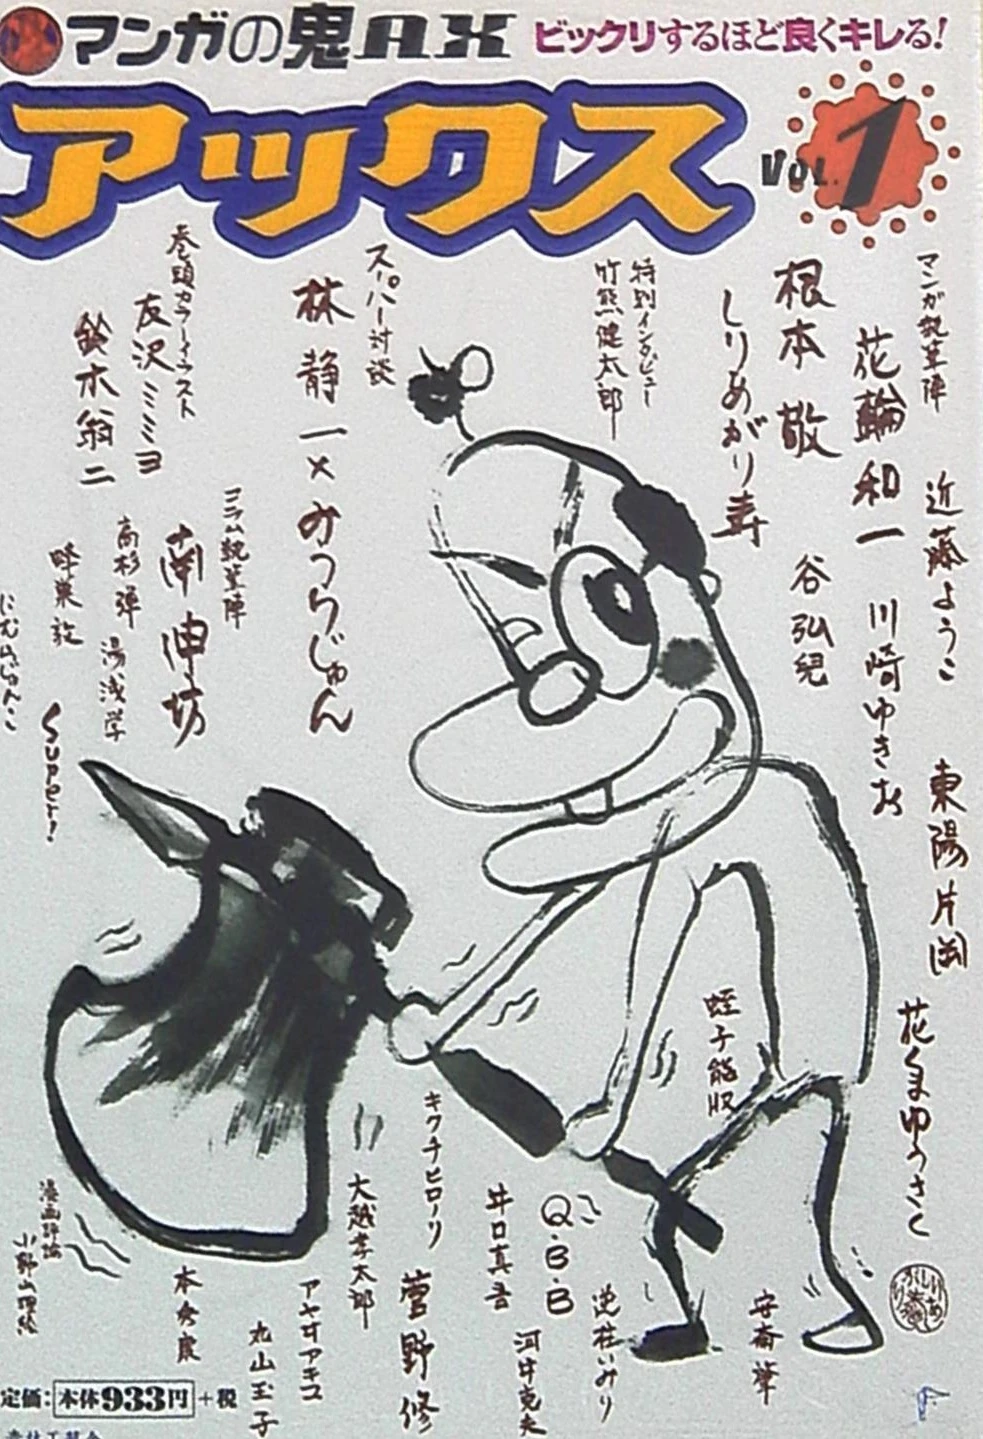 マンガの鬼AX
ビックリするほど良くキレる!
アックス
VOL.1
マンガ執筆陣
近藤ようこ
東陽片岡
花くまゆうさく
花輪和一
川崎ゆきお
根本敬
谷弘兒
しりあがり寿
蛭子能収
安斎肇
特別インタビュー
竹熊健太郎
スーパー対談
林静一×みうらじゅん
巻頭カラーイラスト
友沢ミミヨ
鈴木翁二
コラム執筆陣
南伸坊
高杉弾
湯浅学
Super!
キクチヒロノリ
Q.B.B
逆柱いみり
井口真吾
河井克夫
菅野修
大越孝太郎
アヤヲアキコ
丸山玉子
本秀康
漫画評論
定価:本体933円+税
青林工藝舎